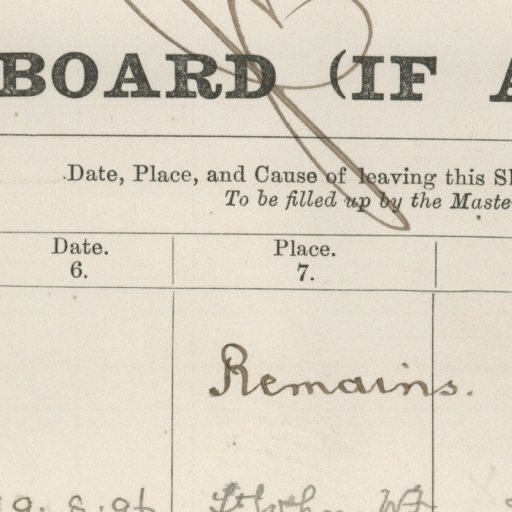 BOARD (IF A
Date, Place, and Cause of leaving this Sh
To be filled up by the Maste
Date. Place.
6. 7.
Remains.